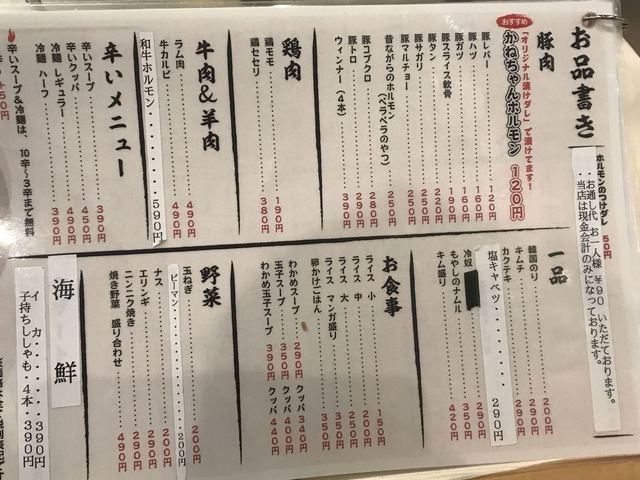 お品書き
ホルモンのつけダレ 50円
・お通し代 お一人様 ¥90 いただております。
・当店は現金会計のみになっております。
豚肉
おすすめ
「オリジナル漬けダレ」で漬けてます!
かねちゃんホルモン 120円
豚レバー 120円
豚ハツ 160円
豚ガツ 160円
豚スライス軟骨 190円
豚タン 220円
豚サガリ 250円
豚マルチョー 220円
昔ながらのホルモン(ペラペラのやつ) 250円
豚コブクロ 280円
豚トロ 290円
ウィンナー(4本) 390円
鶏肉
鶏モモ 190円
鶏セセリ 380円
牛肉&羊肉
ラム肉 490円
牛カルビ 490円
和牛ホルモン 590円
辛いメニュー
辛いスープ 390円
辛いクッパ 450円
冷麺 レギュラー 490円
冷麺 ハーフ 390円
辛いスープ&冷麺は、10辛~3辛まで無料
一品
韓国のり 200円
キムチ 290円
カクテキ 290円
塩キャベツ 290円
冷奴
もやしのナムル 350円
キム盛り 420円
お食事
ライス 小 150円
ライス 中 200円
ライス 大 250円
ライス マンガ盛り 350円
卵かけごはん 350円
わかめスープ 290円 クッパ 340円
玉子スープ 350円 クッパ 400円
わかめ玉子スープ 390円 クッパ 440円
野菜
玉ねぎ 200円
ピーマン 200円
ナス 200円
エリンギ 290円
ニンニク焼き 290円
焼き野菜 盛り合わせ 490円
海鮮
イカ 390円
子持ちししゃも 4本 390円